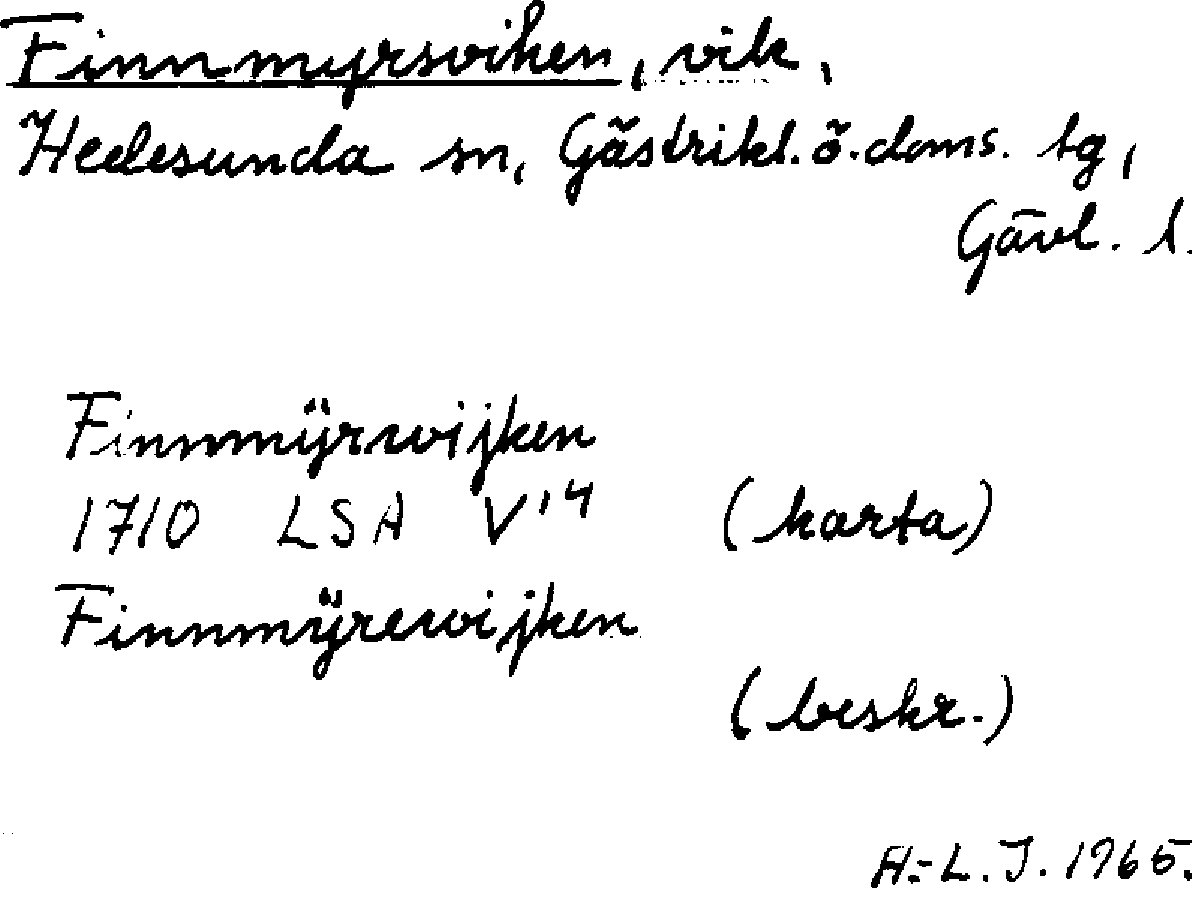 Finnmyrsviken, vik,
Hedesunda sn, Gästrikl. ö. doms. tg,
Gävl. l.
Finnmÿrswijken
1710 LSA V14 (karta)
Finnmÿrewijken
(beskr.)
A.-L. J. 1965.